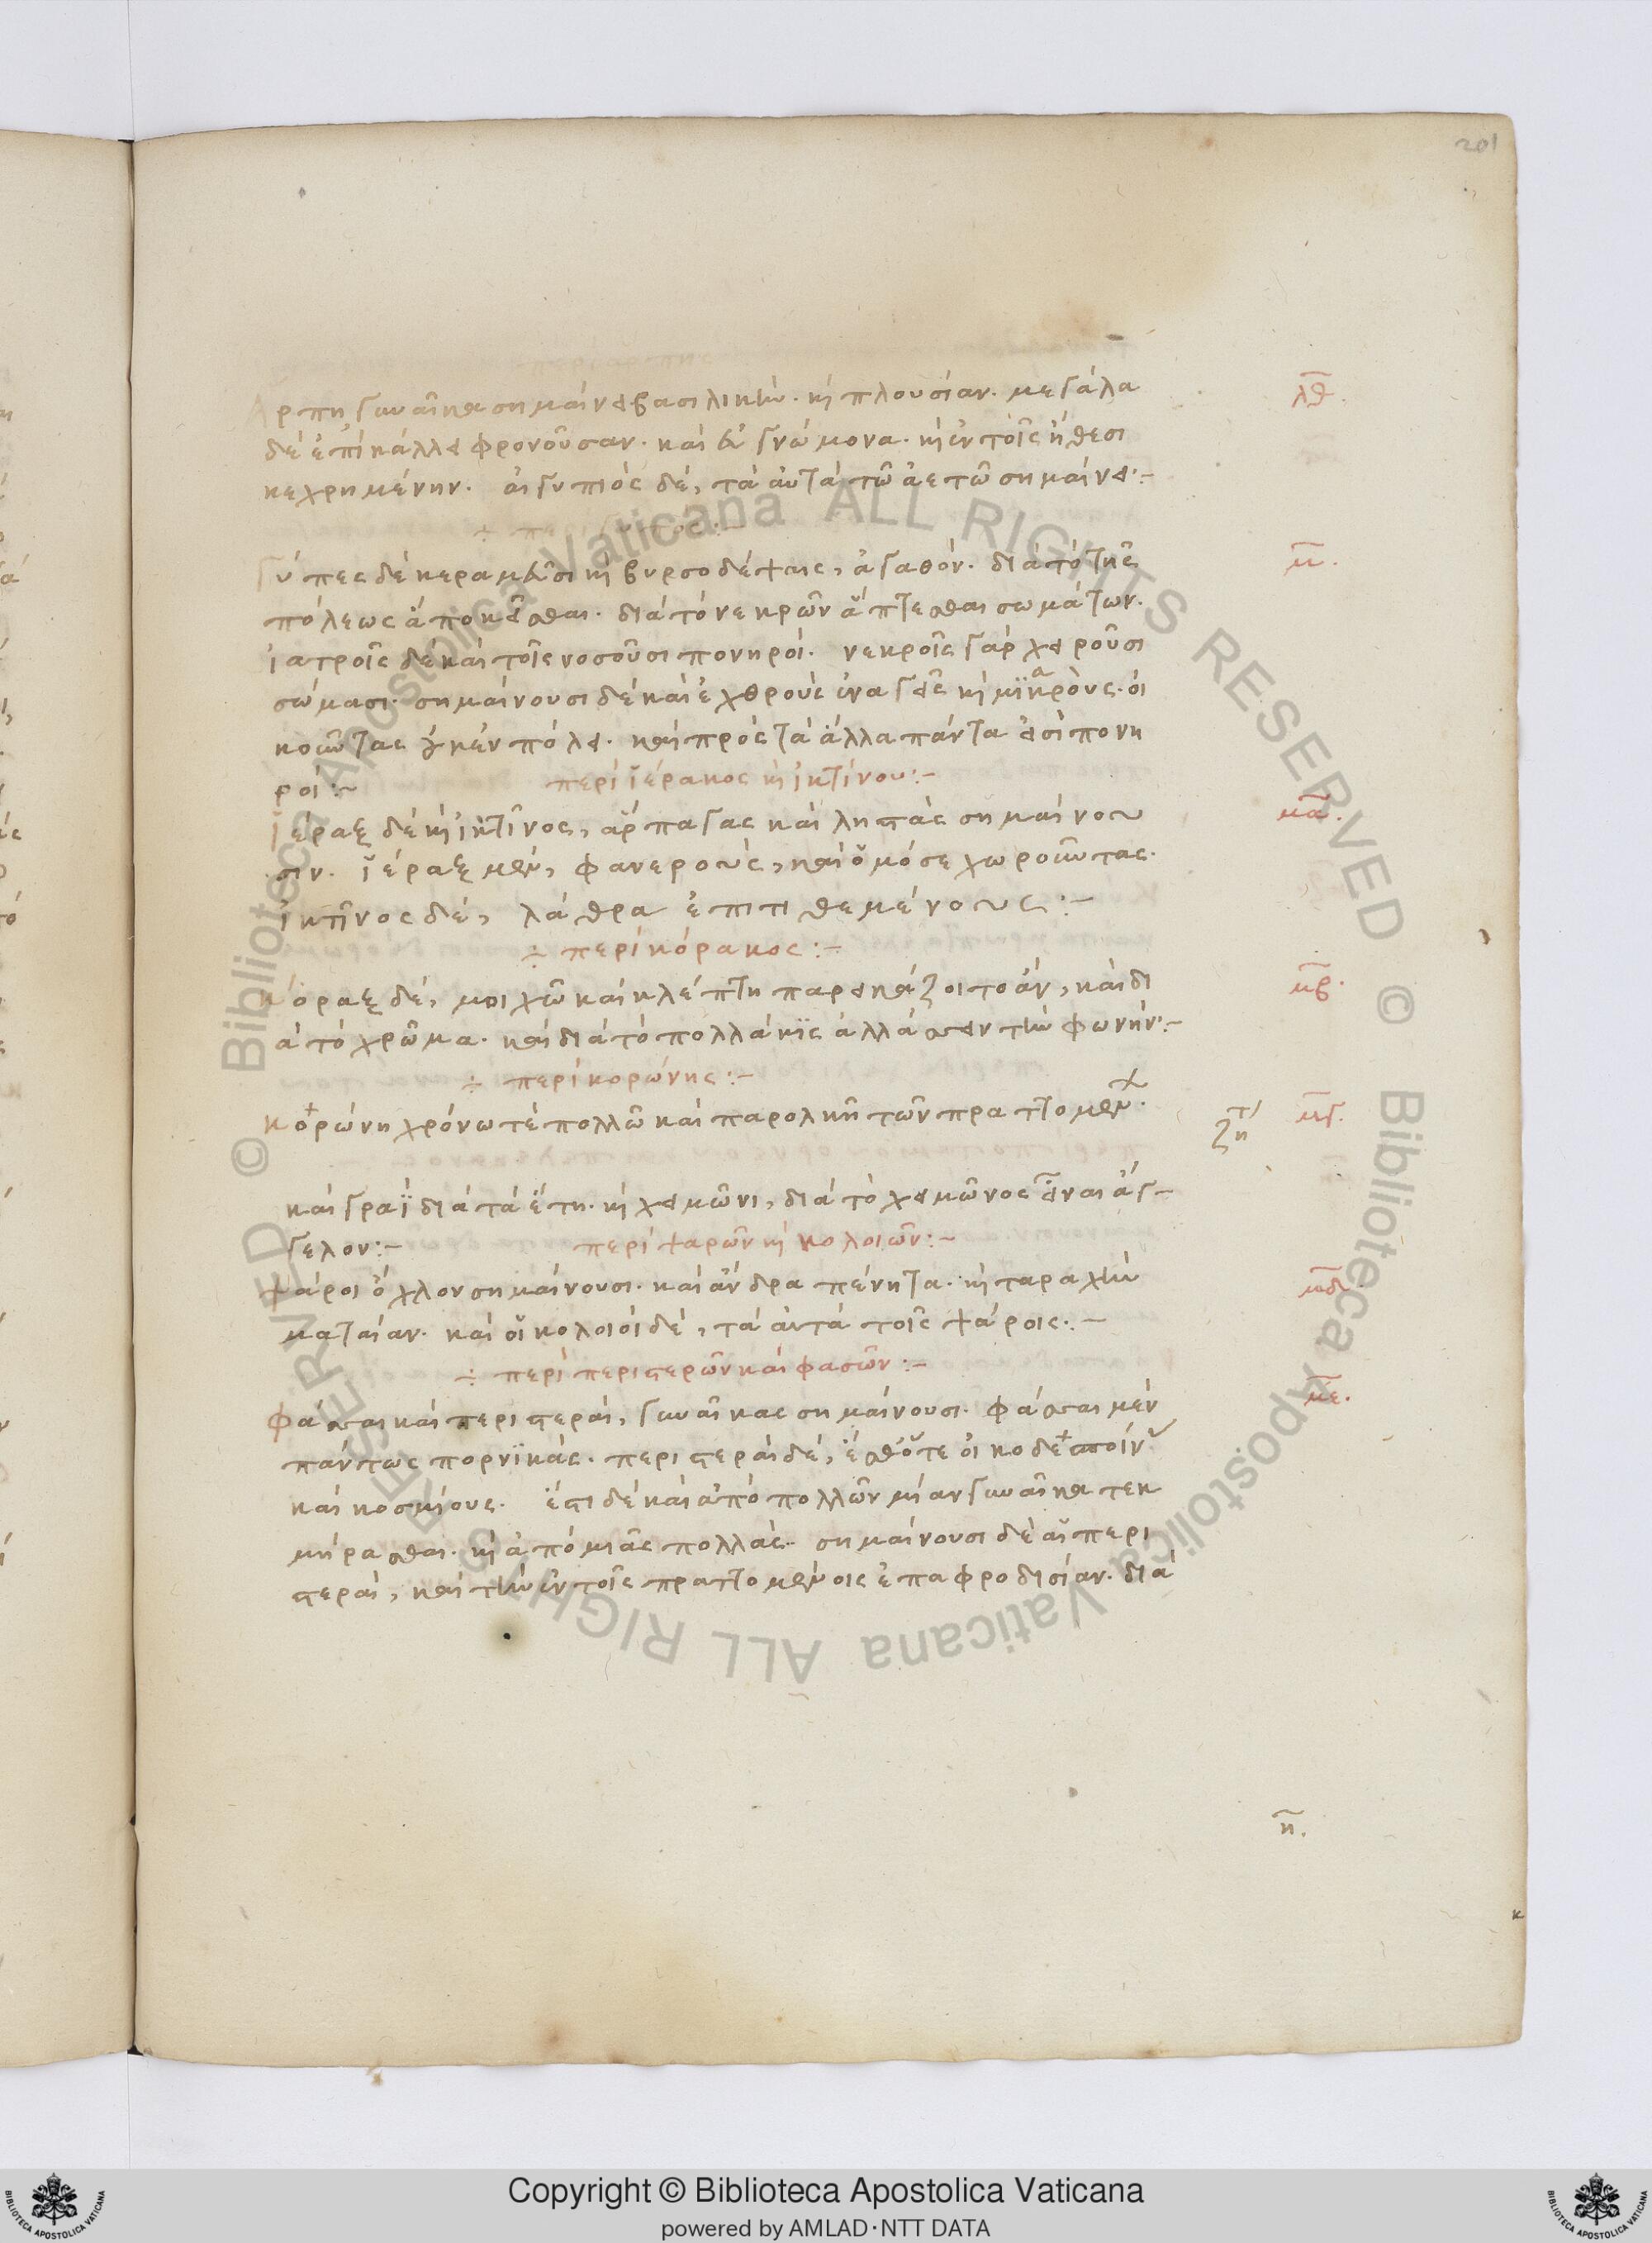 201
περὶ ἅρπης
Ἅρπη γυναῖκα σημαίνει βασιλικὴν. καὶ πλουσίαν. μεγάλα
λθ.
δὲ ἐπὶ κάλλει φρονοῦσαν. καὶ εὐγνώμονα. καὶ ἐν τοῖς ἤθεσι
κεχρημένην. αἰγυπιὸς δέ, τὰ αὐτὰ τῶ ἀετῶ σημαίνει:-
÷ περὶ γυπός:-
Γύπες δὲ κεραμεῦσι καὶ βυρσοδέψαις, ἀγαθόν. διὰ τὸ τῆς
μ.
πόλεως ἀποκεῖσθαι. διὰ τὸ νεκρῶν ἅπτεσθαι σωμάτων.
ἰατροῖς δὲ καὶ τοῖς νοσοῦσι πονηροί. νεκροῖς γὰρ χαιροῦσι
σώμασι. σημαίνουσι δὲ καὶ ἐχθροὺς ἐναγεῖς καὶ μικροὺς. οἰ
κοῦντας οὐκ ἐν πόλει. καὶ πρὸς τὰ ἄλλα πάντα εἰσὶ πονη
ροί:~ περὶ ἱέρακος καὶ ἰκτίνου:-
Ἱέραξ δὲ καὶ ἰκτῖνος, ἅρπαγας καὶ ληστὰς σημαίνου
μα.
σιν. ἱέραξ μὲν, φανεροὺς, καὶ ὁμόσε χωροῦντας.
ἰκτῖνος δέ, λάθρα ἐπιτιθεμένους:-
÷ περὶ κόρακος:-
Κόραξ δέ, μοιχῶ καὶ κλέπτη παρεικάζοιτο ἄν, καὶ δι
μβ.
ὰ τὸ χρῶμα. καὶ διὰ τὸ πολλάκις ἀλλάσσειν τὴν φωνήν:-
÷ περὶ κορώνης:-
Κορώνη χρόνω τὲ πολλῶ καὶ παρολκῆ τῶν πραττομεν.
ζη τ
μγ.
καὶ γραῒ διὰ τὰ ἔτη. καὶ χειμῶνι, διὰ τὸ χειμῶνος εἶναι ἄγ-
γελον:- περὶ ψαρῶν καὶ κολοιῶν:-
Ψάροι ὄχλον σημαίνουσι. καὶ ἄνδρα πένητα. καὶ ταραχὴν
μδ.
ματαίαν. καὶ οἱ κολοιοὶ δέ, τὰ αὐτὰ τοῖς ψάροις:-
÷ περὶ περιστερῶν καὶ φασσῶν:-
Φάσσαι καὶ περιστεραὶ, γυναῖκας σημαίνουσι. φάσσαι μὲν
με.
πάντως πορνικάς. περιστεραὶ δέ, ἔσθ' ὅτε οἰκοδεσποίν
καὶ κοσμίους. ἔστι δὲ καὶ ἀπὸ πολλῶν μίαν γυναῖκα τεκ
μήρασθαι. καὶ ἀπὸ μιᾶς πολλάς. σημαίνουσι δὲ αἱ περι
στεραὶ, καὶ τὴν ἐν τοῖς πραττομένοις ἐπαφροδισίαν. διὰ
η.
Copyright © Biblioteca Apostolica Vaticana
powered by AMLAD·NTT DATA